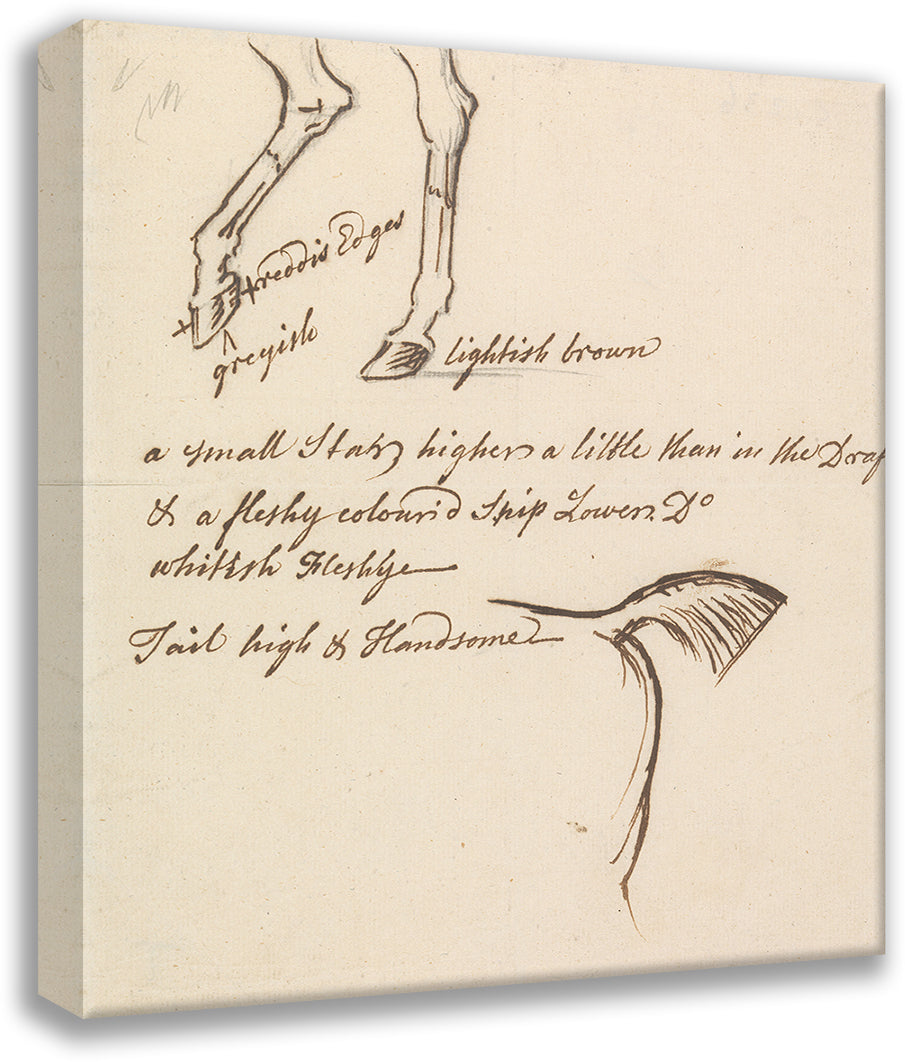 reddis Edges
greyish
lightish brown
a small Star higher a little than in the Draf
& a fleshy colour'd Snip Lower Dº
whitish Fleshye
Tail high & Handsome